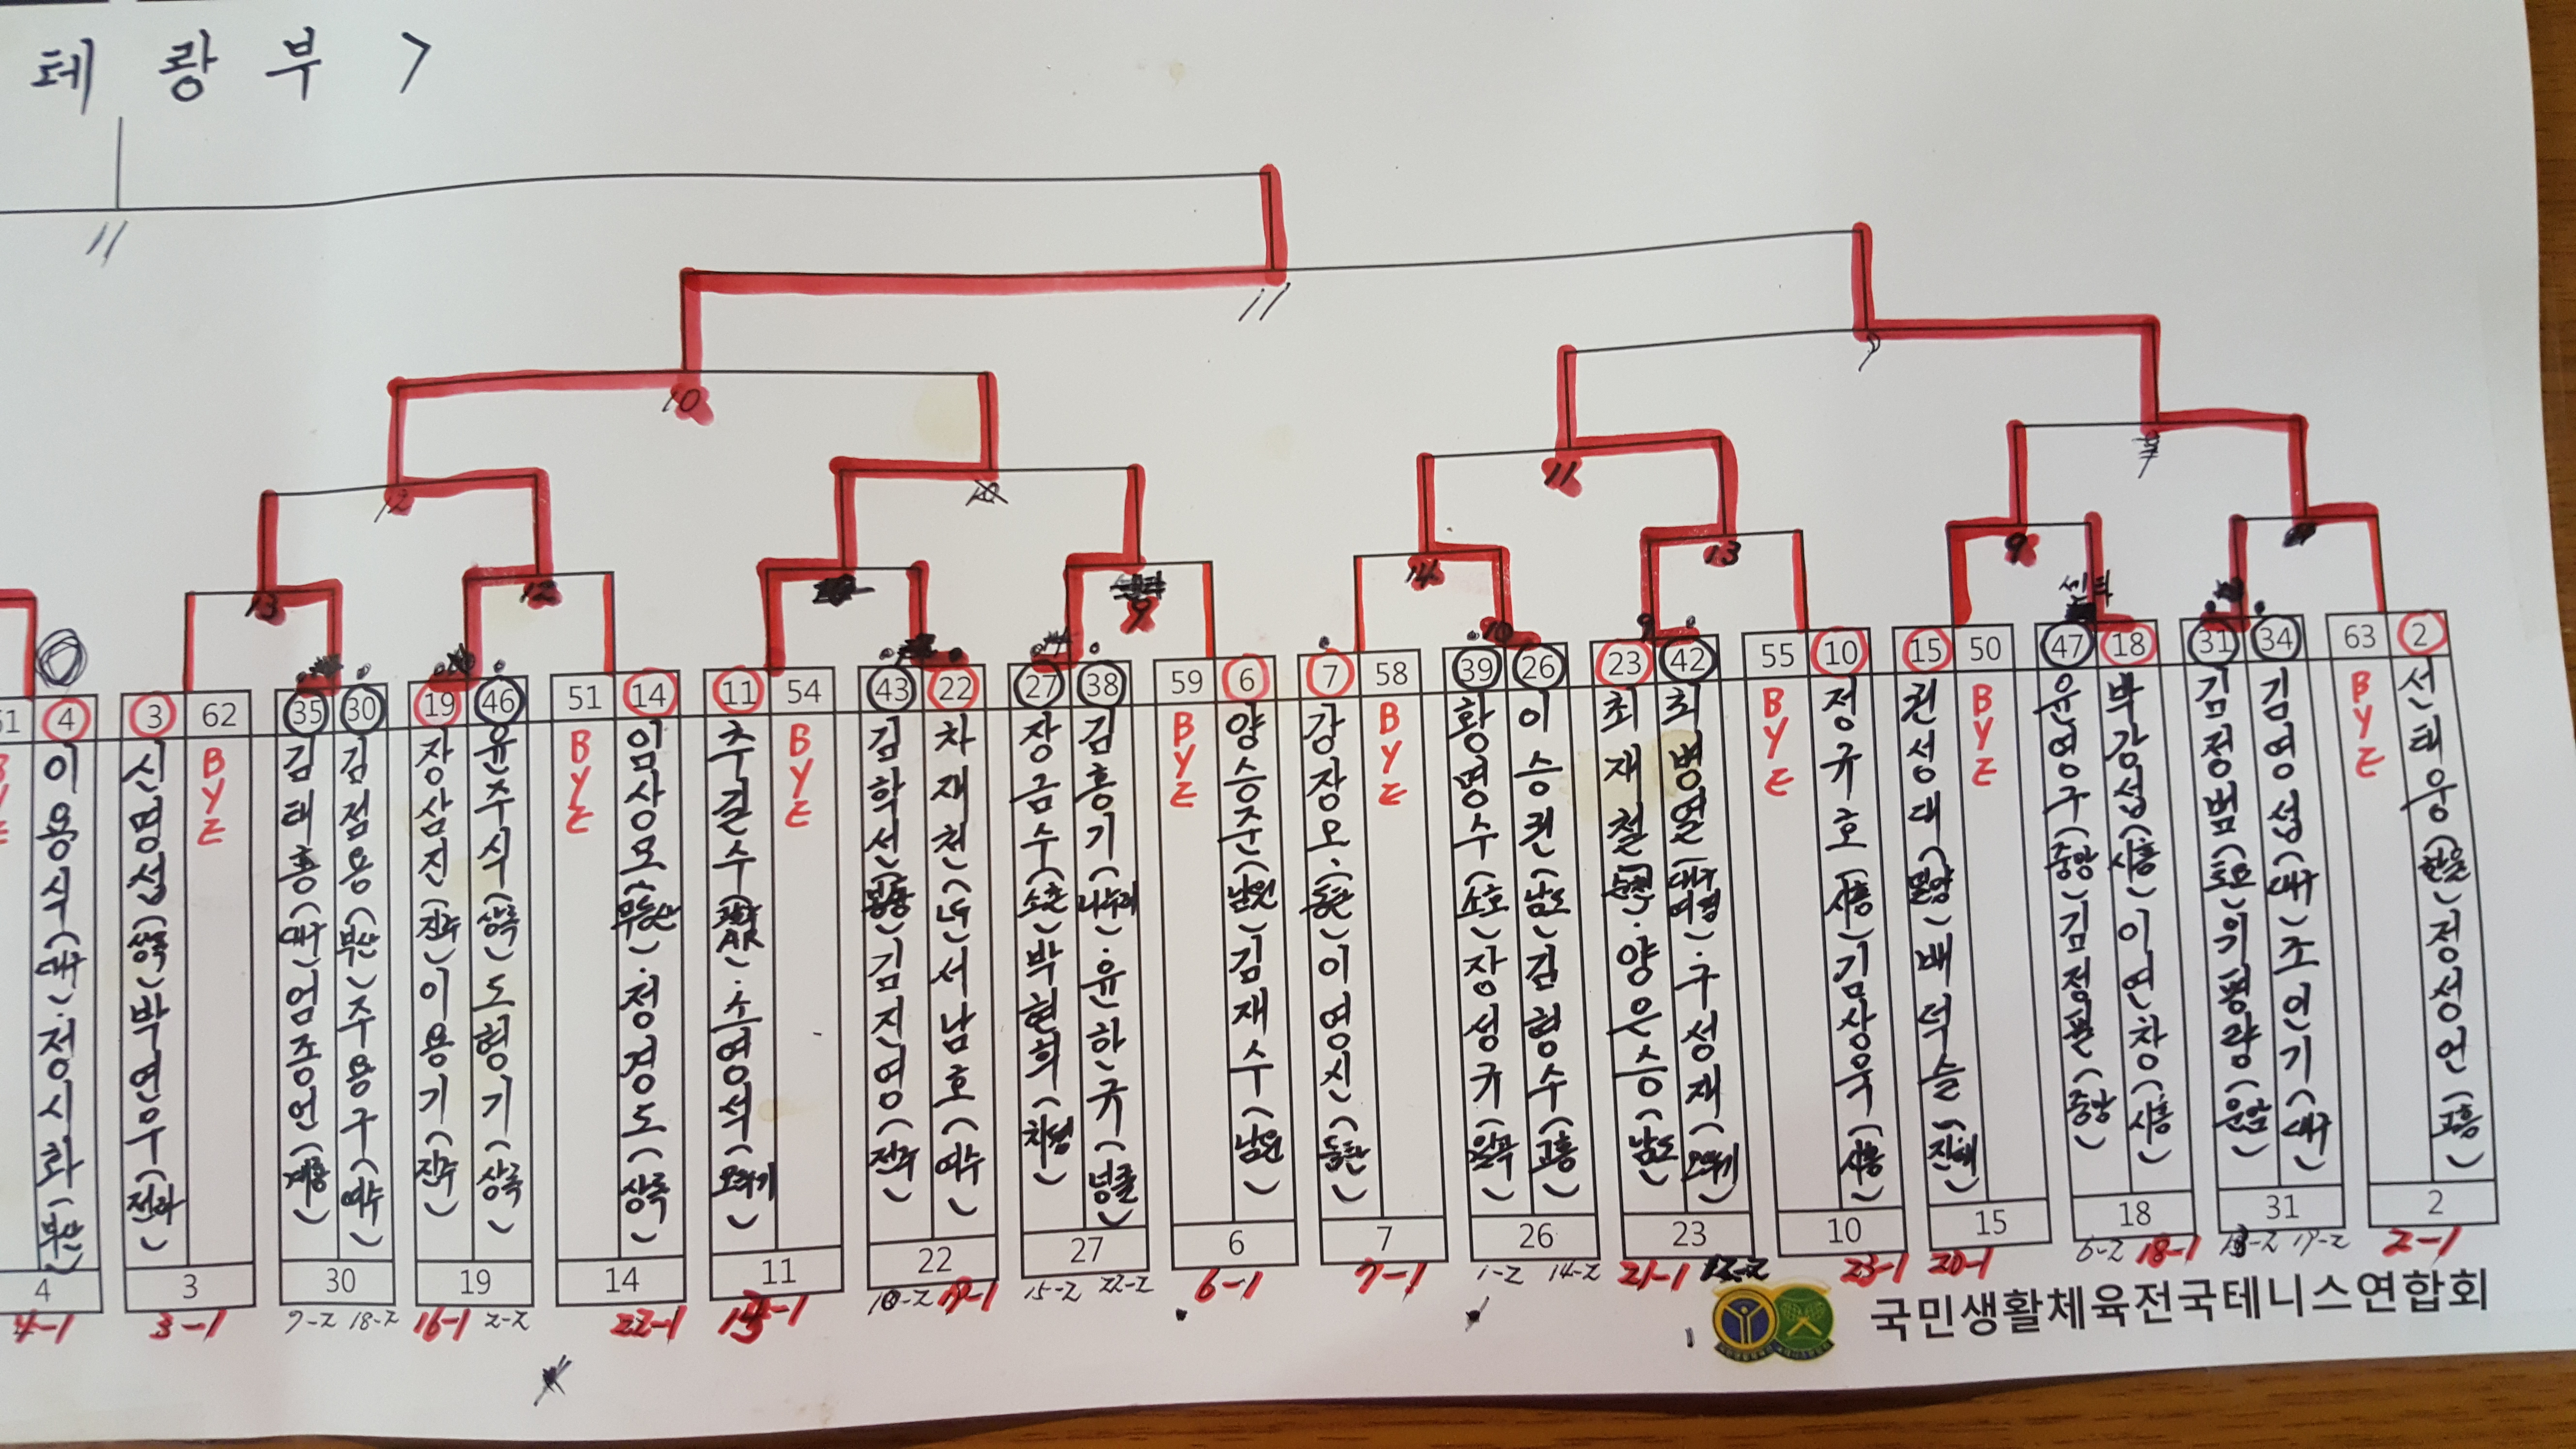 테 랑 부 >
11
11
10
7
12
11
13
12
9
14
13
9
센타
10
9
61 4 3 62 35 30 19 46 51 14 11 54 43 22 27 38 59 6 7 58 39 26 23 42 55 10 15 50 47 18 31 34 63 2
이용식(대구)·정시화(부산)
신명섭(상록)박연우(전하)
BYE
김태흥(대구)엄종언(계룡)
김점용(부산)주용구(여수)
장삼진(진주)이용기(진주)
윤주식(상록)도형기(상록)
BYE
임상모(무등산)·정경도(상록)
BYE
김학선 김진영(전주)
차재천 서남호(여수)
장금수(소촌)박현희
김홍기(나누리)·윤하규
BYE
양승준(남원)김재수(남원)
강장모 이영신
BYE
황명수(소호)장성규(일곡)
이승권(남도)김형수(고흥)
최재철(순천)·양은승(남도)
최병열(대구)·구성재
BYE
정규호(시흥)김상욱(시흥)
권성대(밀양)배석슬
BYE
윤영구(중앙)김정필(중앙)
부강섭(시흥)이연창(시흥)
김정범(토요)위평량(운암)
김영섭(대구)조인기(대구)
BYE
선태웅(한울)정성언(고흥)
4 3 30 19 14 11 22 27 6 7 26 23 10 15 18 31 2
4-1 3-1 9-2 18-2 16-1 2-2 22-1 10-2 19-1 15-2 22-2 6-1 7-1 1-2 14-2 21-1 12-2 23-1 20-1 6-2 18-1 13-2 17-2 2-1
국민생활체육전국테니스연합회